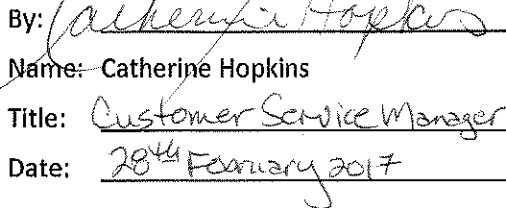 By: Catherine Hopkins
Name: Catherine Hopkins
Title: Customer Service Manager
Date: 28th February 2017